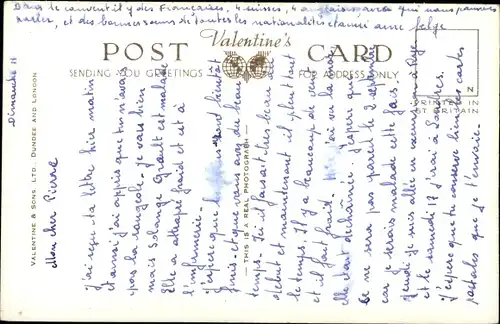 Dans le couvent il y des Françaises, 4 suisses, 4 anglaises avec qui nous pouvons
parler, et des bonnes sœurs de toutes les nationalités
POST Valentine's CARD
SENDING YOU GREETINGS
FOR ADDRESS ONLY
PRINTED IN
GT BRITAIN
N
VALENTINE & SONS LTD., DUNDEE AND LONDON
THIS IS A REAL PHOTOGRAPH
Dimanche 11
Mon cher Pierre
J'ai reçu ta lettre hier matin
et aussi j'ai appris que tu n'avais
pas la rougeole. Je vais bien
mais Solange Grault est malade
Elle a attrapé froid et est à
l'infirmerie
J'espère que bientôt
finis et que vous avez du beau
temps. Ici il faisait très beau au
début et maintenant il pleut tout
le temps, Il y a beaucoup de vent
et il fait froid. j'ai vu la mer
elle était déchaînée. J'espère que
ce ne sera pas pareil le 2 septembre
car je serais malade cette fois.
Jeudi je suis allée en excursion à Rye
et le samedi 17 j'irai à Londres.
J'espère que tu conserves bien les cartes
postales que je t'envoie.